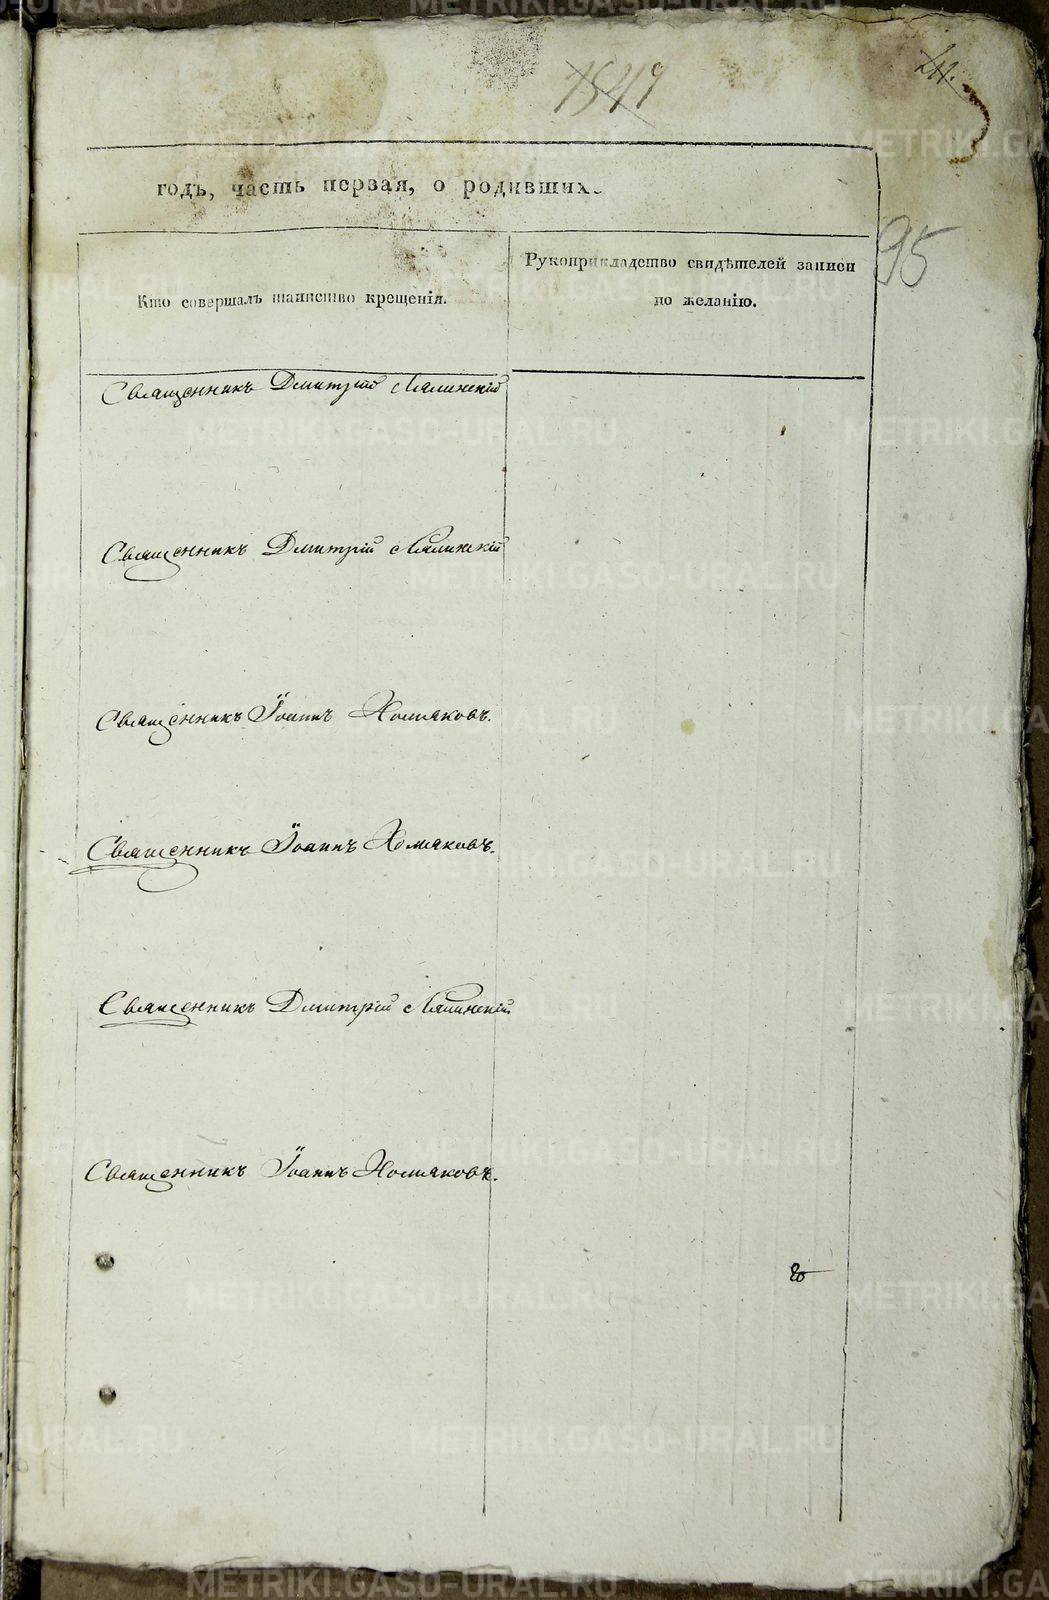 годъ, часть первая, о родивших
95
Кто совершалъ таинство крещенія.
Рукоприкладство свидѣтелей записи
по желанію.
Священникъ Дмитрій Лялинскій
Священникъ Дмитрій Лялинскій
Священникъ Іоаннъ Хомяковъ.
Священникъ Іоаннъ Хомяковъ.
Священникъ Дмитрій Лялинскій
Священникъ Іоаннъ Хомяковъ.
METRIKI.GASO-URAL.RU